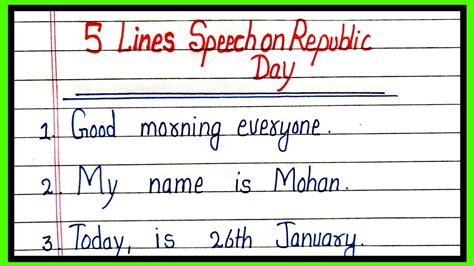 5 Lines Speech on Republic
Day
1. Good morning everyone.
2. My name is Mohan.
3. Today, is 26th January.